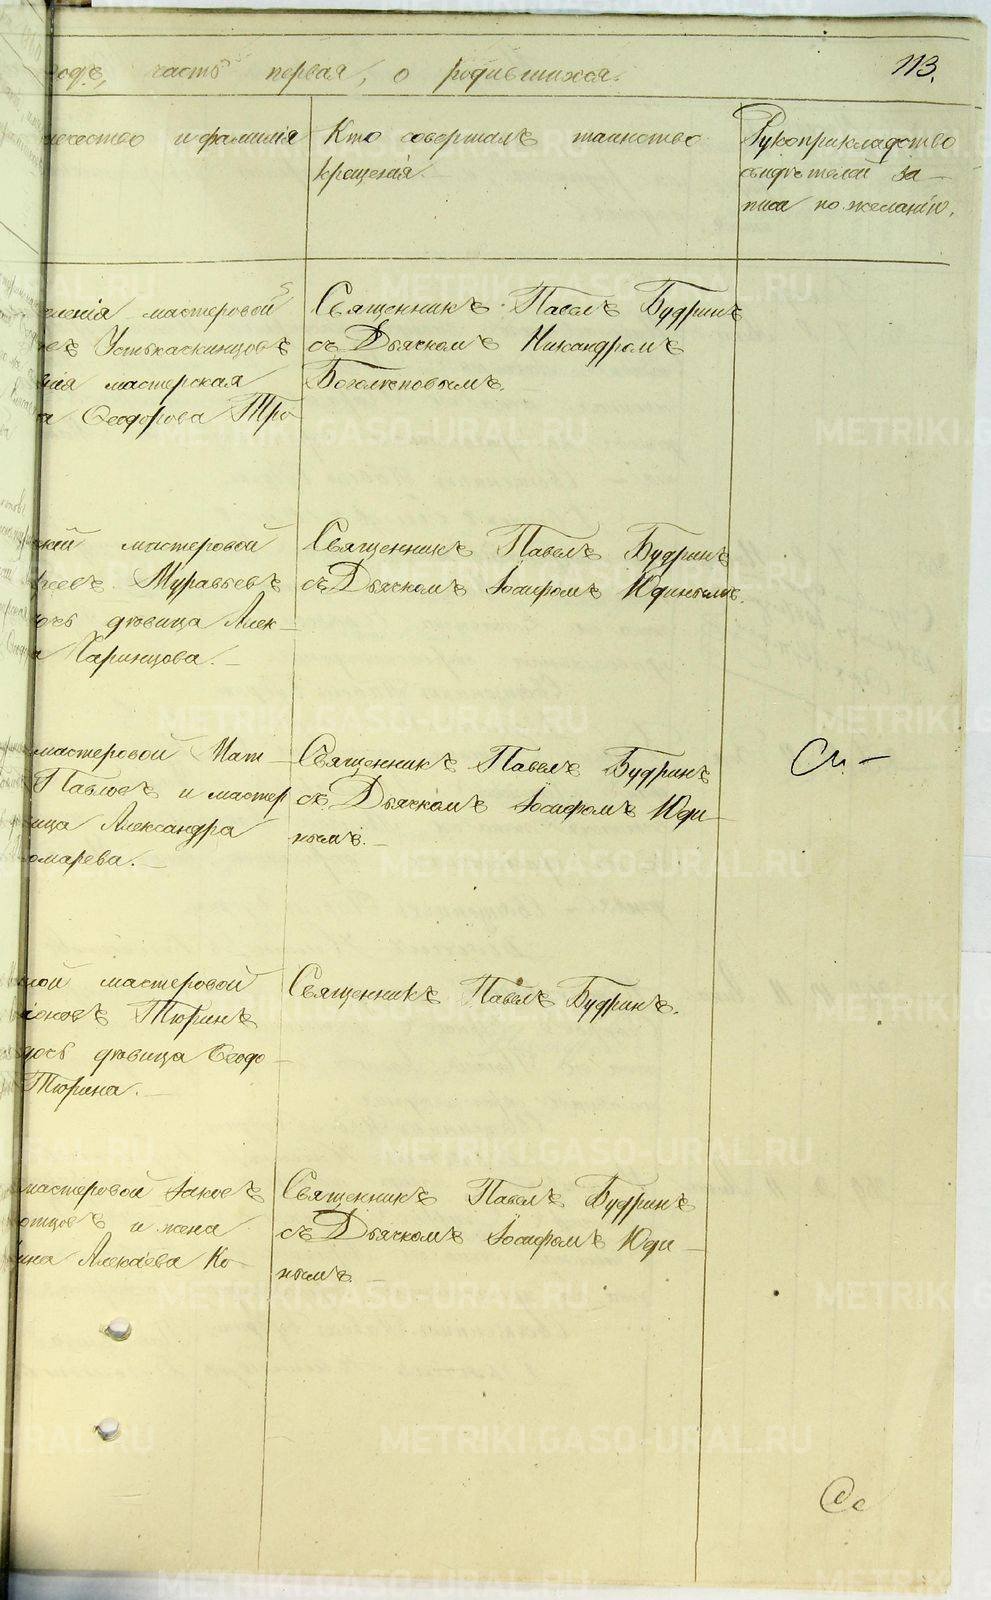 годъ, часть первая, о родившихся.
113.
отчество и фамилія
Кто совершалъ таинство
крещенія.
Рукоприкладство
свидѣтелей за-
писи по желанію.
еленія мастеровой
Устькаскинцовъ
мастерская
а Ѳеодорова Тро
Священникъ Павелъ Будринъ
съ Дьячкомъ Никандромъ
Боголѣповымъ.
скій мастеровой
Муравьевъ
дѣвица Алек-
а Харинцова.
Священникъ Павелъ Будринъ
съ Дьячкомъ Іосифомъ Юдинымъ.
мастеровой Мат-
Павловъ и мастер
ица Александра
омарева.
Священникъ Павелъ Будринъ
съ Дьячкомъ Іосифомъ Юди-
нымъ.
См. -
мастеровой
Тюринъ
дѣвица Ѳеодо-
Тюрина.
Священникъ Павелъ Будринъ.
мастеровой Іаковъ
и жена
ина Алексѣева Ко-
Священникъ Павелъ Будринъ
съ Дьячкомъ Іосифомъ Юди-
нымъ.
METRIKI.GASO-URAL.RU